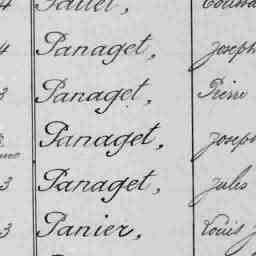 4 Panaget, Joseph
3 Panaget, Pierre
Panaget, Joseph
3 Panaget, Jules
3 Panier, Louis